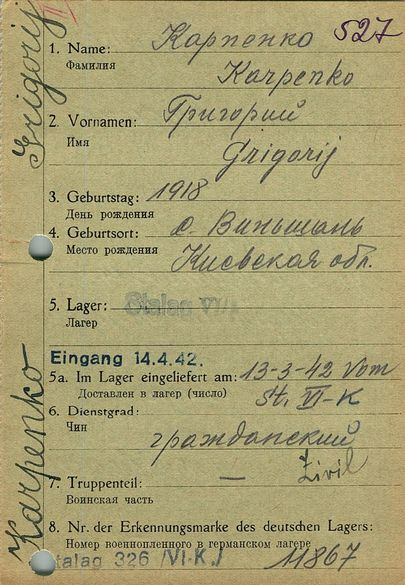 527
1. Name: Карпенко
Фамилия Karpenko
2. Vornamen: Григорий
Имя Grigorij
3. Geburtstag: 1918
День рождения
4. Geburtsort: с. Виньшань
Место рождения Киевская обл.
5. Lager: Stalag VI
Лагер
Eingang 14.4.42.
5a. Im Lager eingeliefert am: 13-3-42 Vom
Доставлен в лагер (число) St. VI-K
6. Dienstgrad:
Чин гражданский
Zivil
7. Truppenteil: —
Воинская часть
8. Nr. der Erkennungsmarke des deutschen Lagers:
Номер военнопленного в германском лагере
Stalag 326 /VI-K./ 11867
Karpenko Grigorij